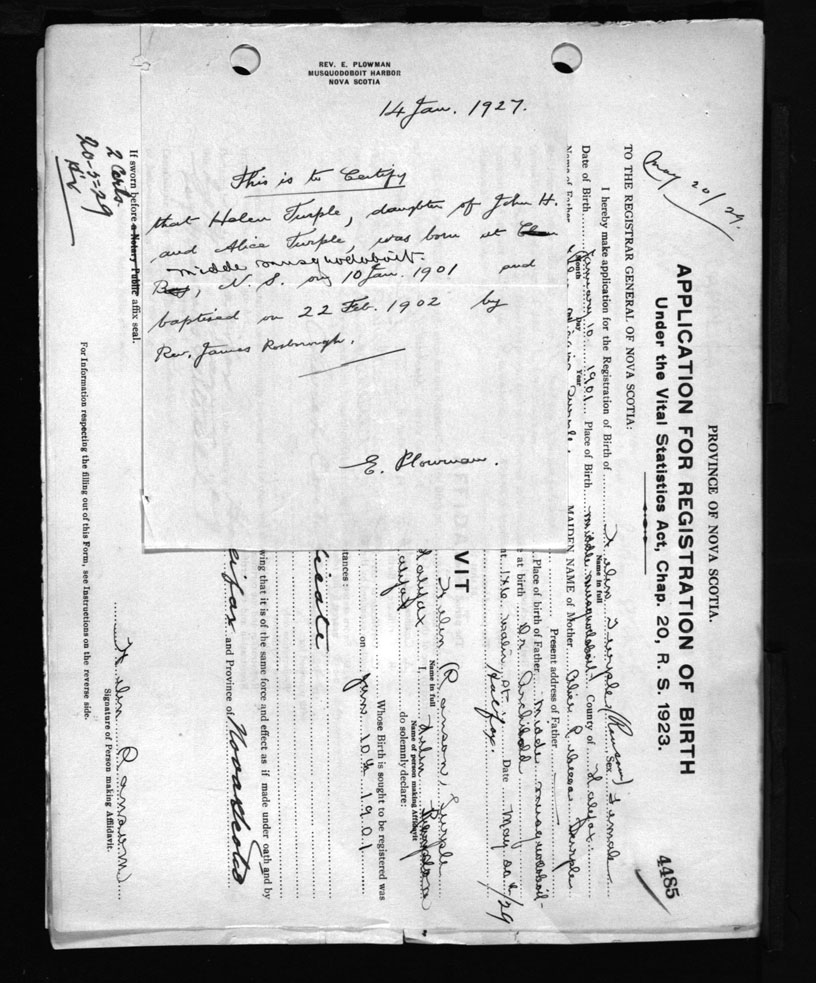 REV. E. PLOWMAN
MUSQUODOBOIT HARBOR
NOVA SCOTIA
14 Jan. 1927.
This is to Certify
that Helen Turple, daughter of John H.
and Alice Turple, was born at
Middle Musquodoboit
N. S. on 10 Jan. 1901 and
baptised on 22 Feb. 1902 by
Rev. James Rosborough.
E. Plowman.
PROVINCE OF NOVA SCOTIA.
4485
APPLICATION FOR REGISTRATION OF BIRTH
Under the Vital Statistics Act, Chap. 20, R. S. 1923.
May 20/29.
TO THE REGISTRAR GENERAL OF NOVA SCOTIA:
I hereby make application for the Registration of Birth of Helen Turple (Ranson) Sex Female
Name in full
Date of Birth January 10 1901 Place of Birth Middle Musquodoboit County of Halifax
Month Day Year
Name of Father MAIDEN NAME of Mother Alice Rebecca Turple
Present address of Father
Place of birth of Father Middle Musquodoboit
at birth Dr. Archibald
Date May 20/29
Halifax.
VIT
Helen (Ranson) Turple
Name in full
Halifax I, Helen
Name of person making Affidavit
Halifax do solemnly declare:
Whose Birth is sought to be registered was
on Jan. 10th 1901
tances:
wing that it is of the same force and effect as if made under oath and by
and Province of Nova Scotia
Helen Ranson
Signature of Person making Affidavit.
If sworn before a Notary Public affix seal.
For Information respecting the filling out of this Form, see Instructions on the reverse side.
2 Certs.
20-5-29